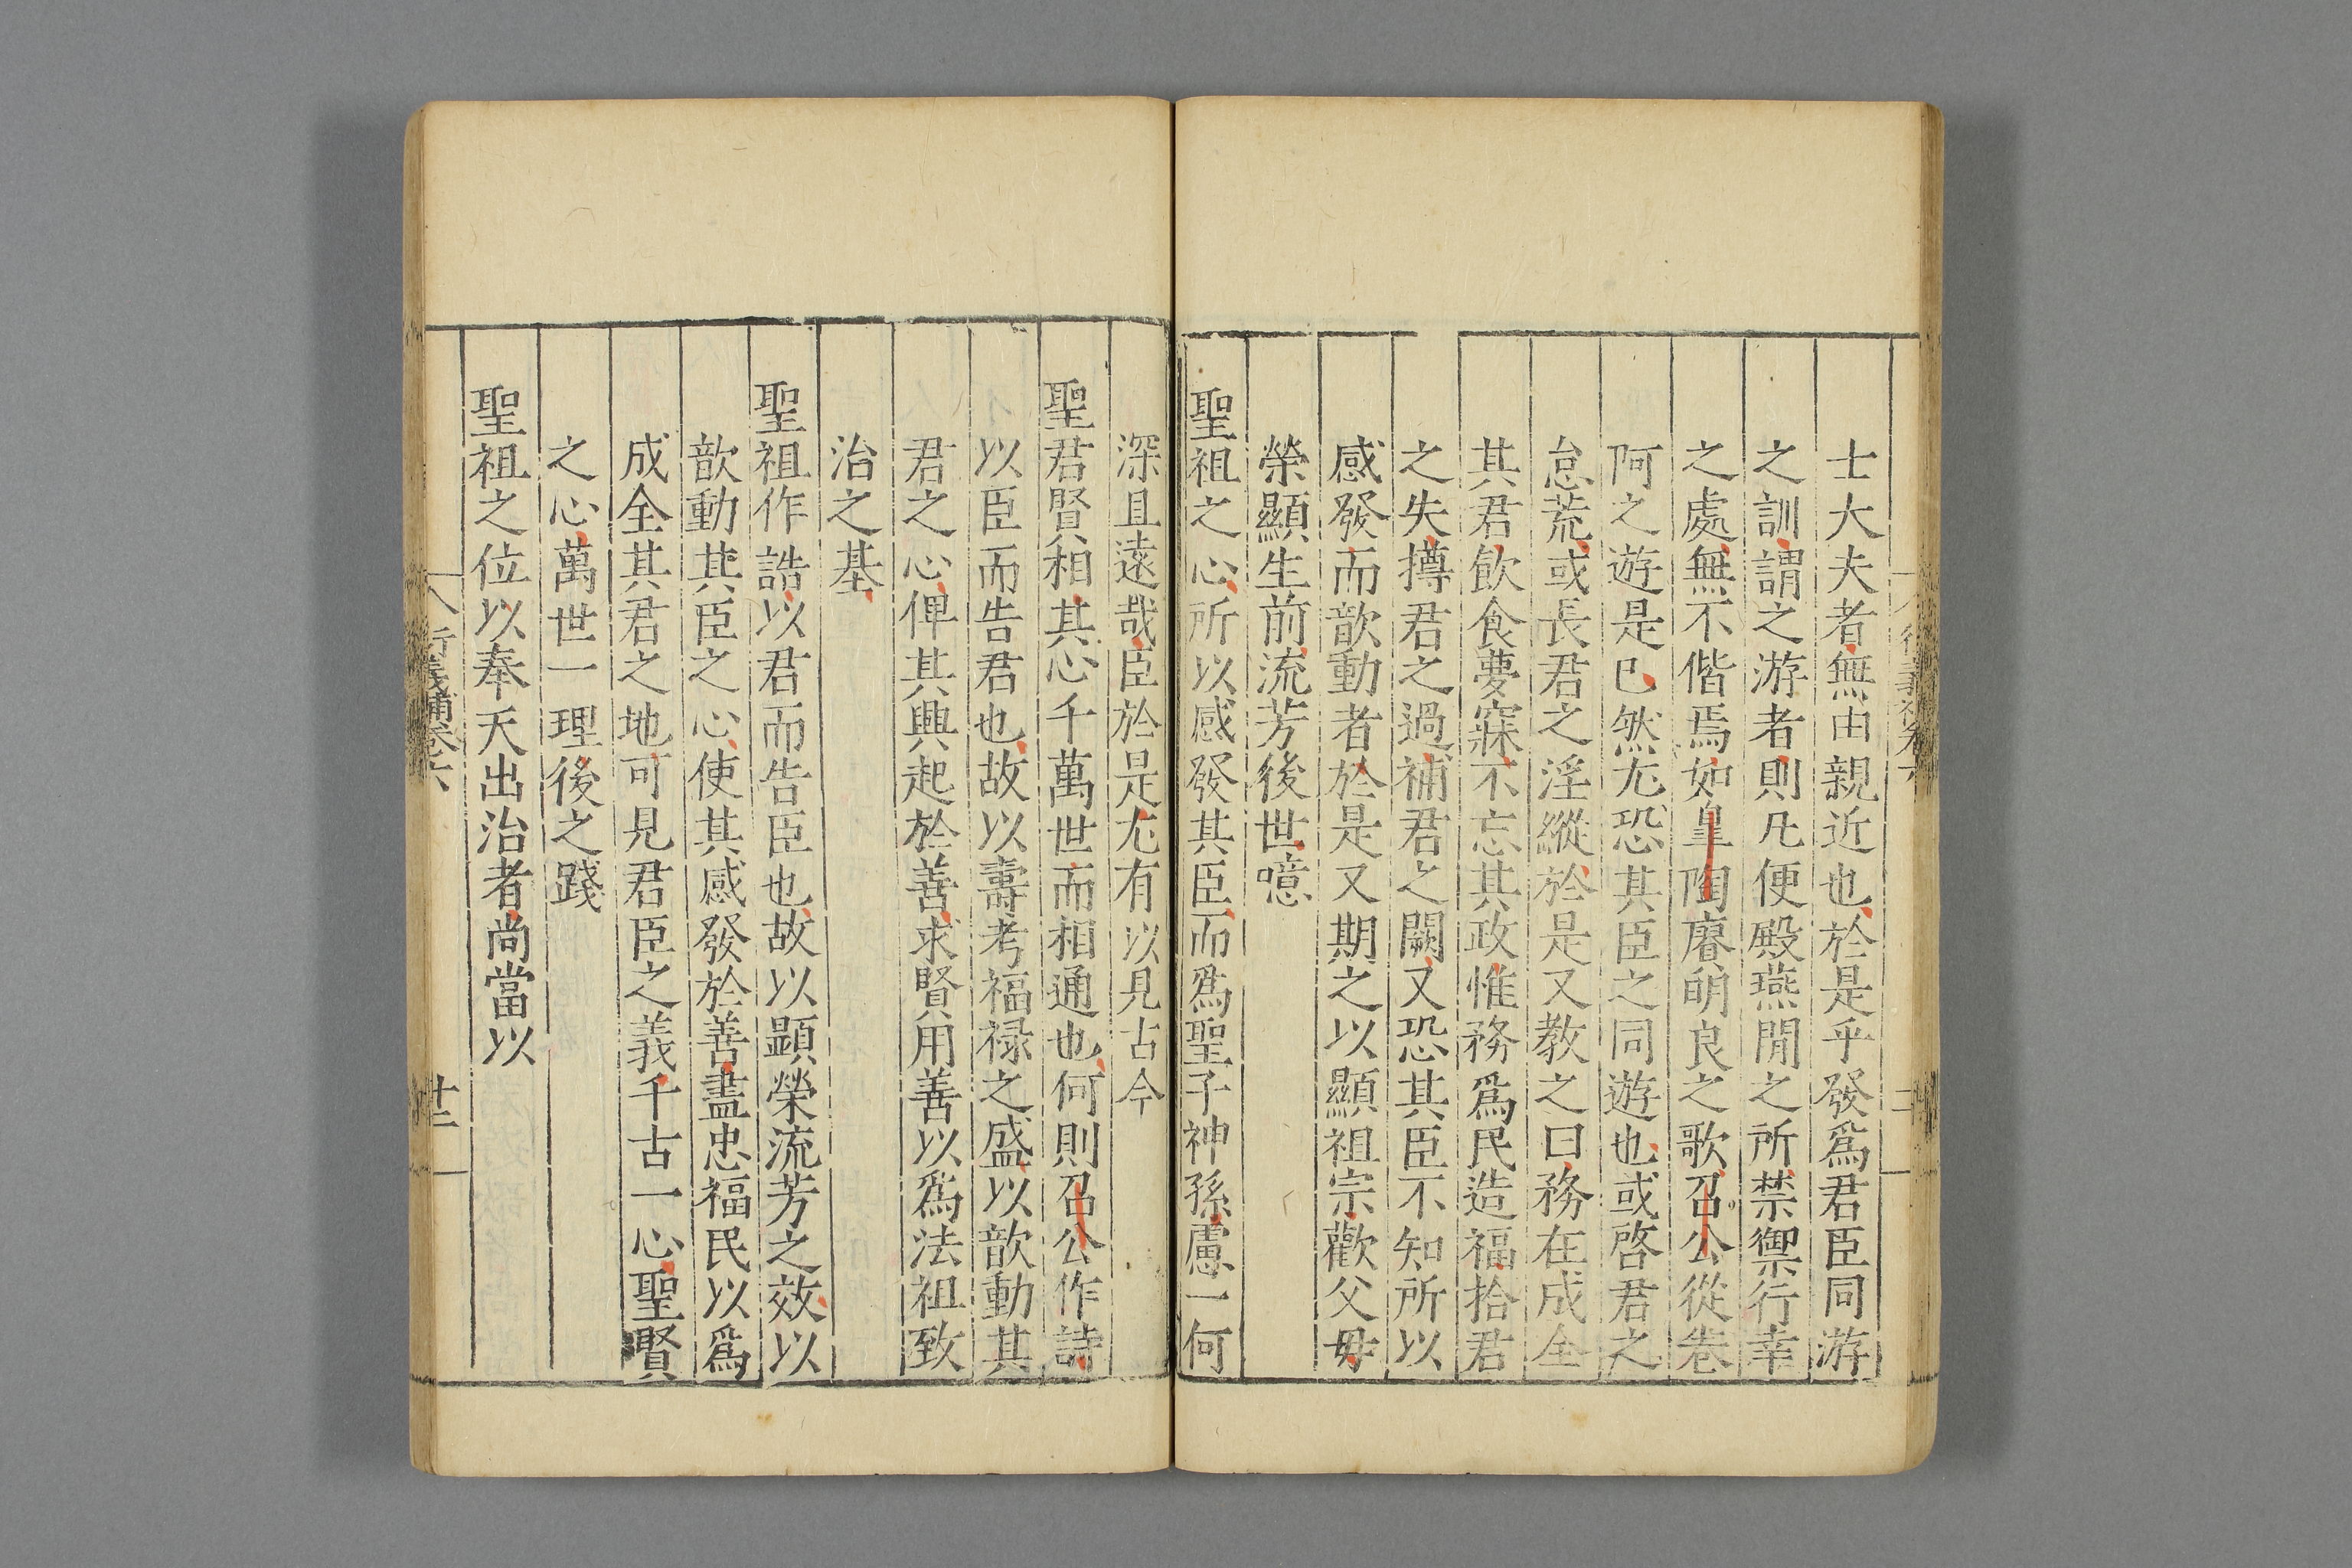 士大夫者無由親近也於是乎發爲君臣同游
之訓謂之游者則凡便殿燕閒之所禁禦行幸
之處無不偕焉如皇陶賡明良之歌召公從卷
阿之遊是已然尢恐其臣之同遊也或啓君之
怠荒或長君之淫縱於是又教之曰務在成全
其君飲食夢寐不忘其政惟務爲民造福拾君
之失撙君之過補君之闕又恐其臣不知所以
感發而歆動者於是又期之以顯祖宗歡父毋
榮顯生前流芳後世噫
聖祖之心所以感發其臣而爲聖子神孫慮一何
深且遠哉臣於是尢有以見古今
聖君賢相其心千萬世而相通也何則召公作詩
以臣而告君也故以壽考福禄之盛以歆動其
君之心俾其興起於善求賢用善以爲法祖致
治之基
聖祖作誥以君而告臣也故以顕榮流芳之效以
歆動其臣之心使其感發於善盡忠福民以爲
成全其君之地可見君臣之義千古一心聖賢
之心萬世一理後之踐
聖祖之位以奉天出治者尚當以
衍義補卷六
十二